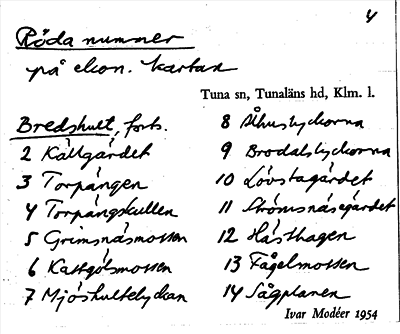 4
Röda nummer
på ekon. kartan
Tuna sn, Tunaläns hd, Klm. l.
Bredshult, forts.
2 Källgärdet
3 Torpängen
4 Torpängskullen
5 Grimsnäsmossen
6 Kattgölsmossen
7 Mjöshultelyckan
8 Åhuslyckorna
9 Brodalslyckorna
10 Lövstagärdet
11 Strömsnäsegärdet
12 Hästhagen
13 Fågelmossen
14 Sågplanen
Ivar Modéer 1954